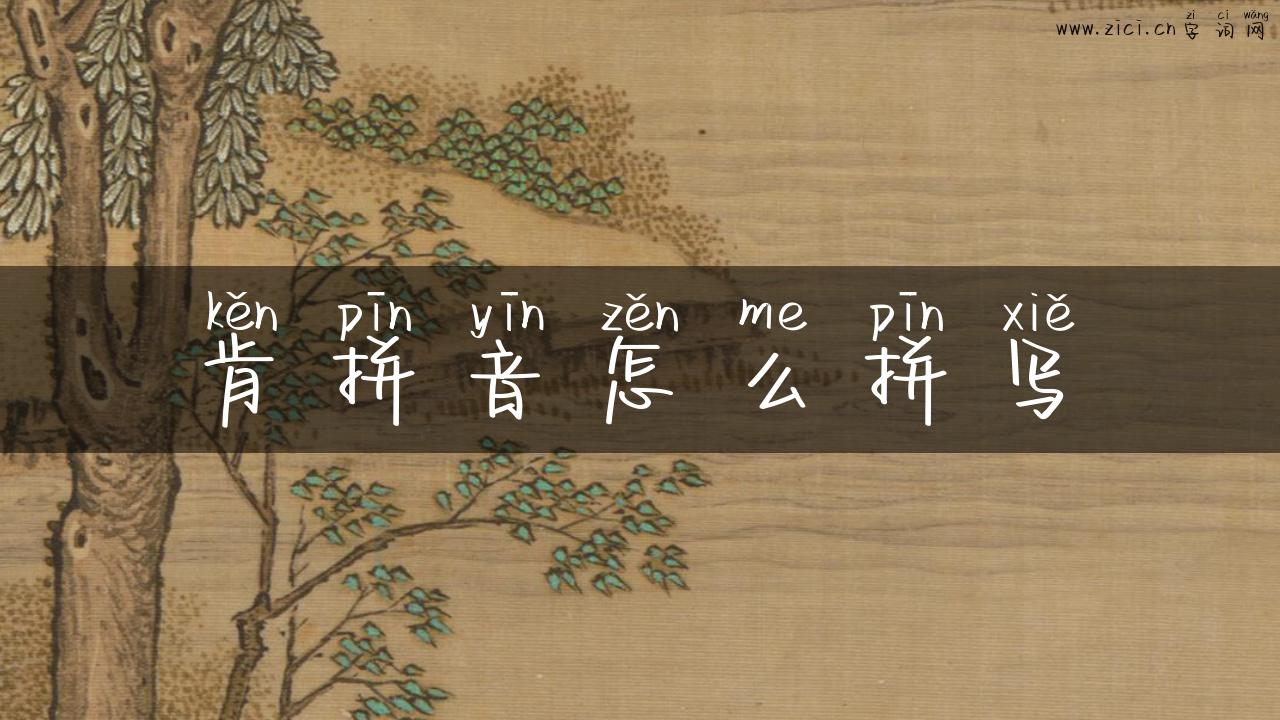 zì cí wǎng
www.zici.cn 字词网
kěn pīn yīn zěn me pīn xiě
肯拼音怎么拼写